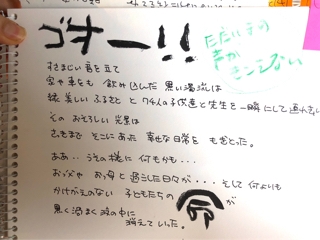 ゴオー!!
ただいまの
声が
きこえない
すさまじい音を立て
家や車をも 飲み込んだ 黒い濁流は
美しい ふるさと と 74人の子供達と先生を一瞬にして
その おそろしい 光景は
さっきまで そこにあった 幸せな日常を もぎとった。
ああ‥ うその様に 何もかも‥‥
おっ父や お母と過ごした日々が‥‥ そして 何よりも
かけがえのない 子どもたちの 命 が
黒く渦まく 波の中に
消えていった。